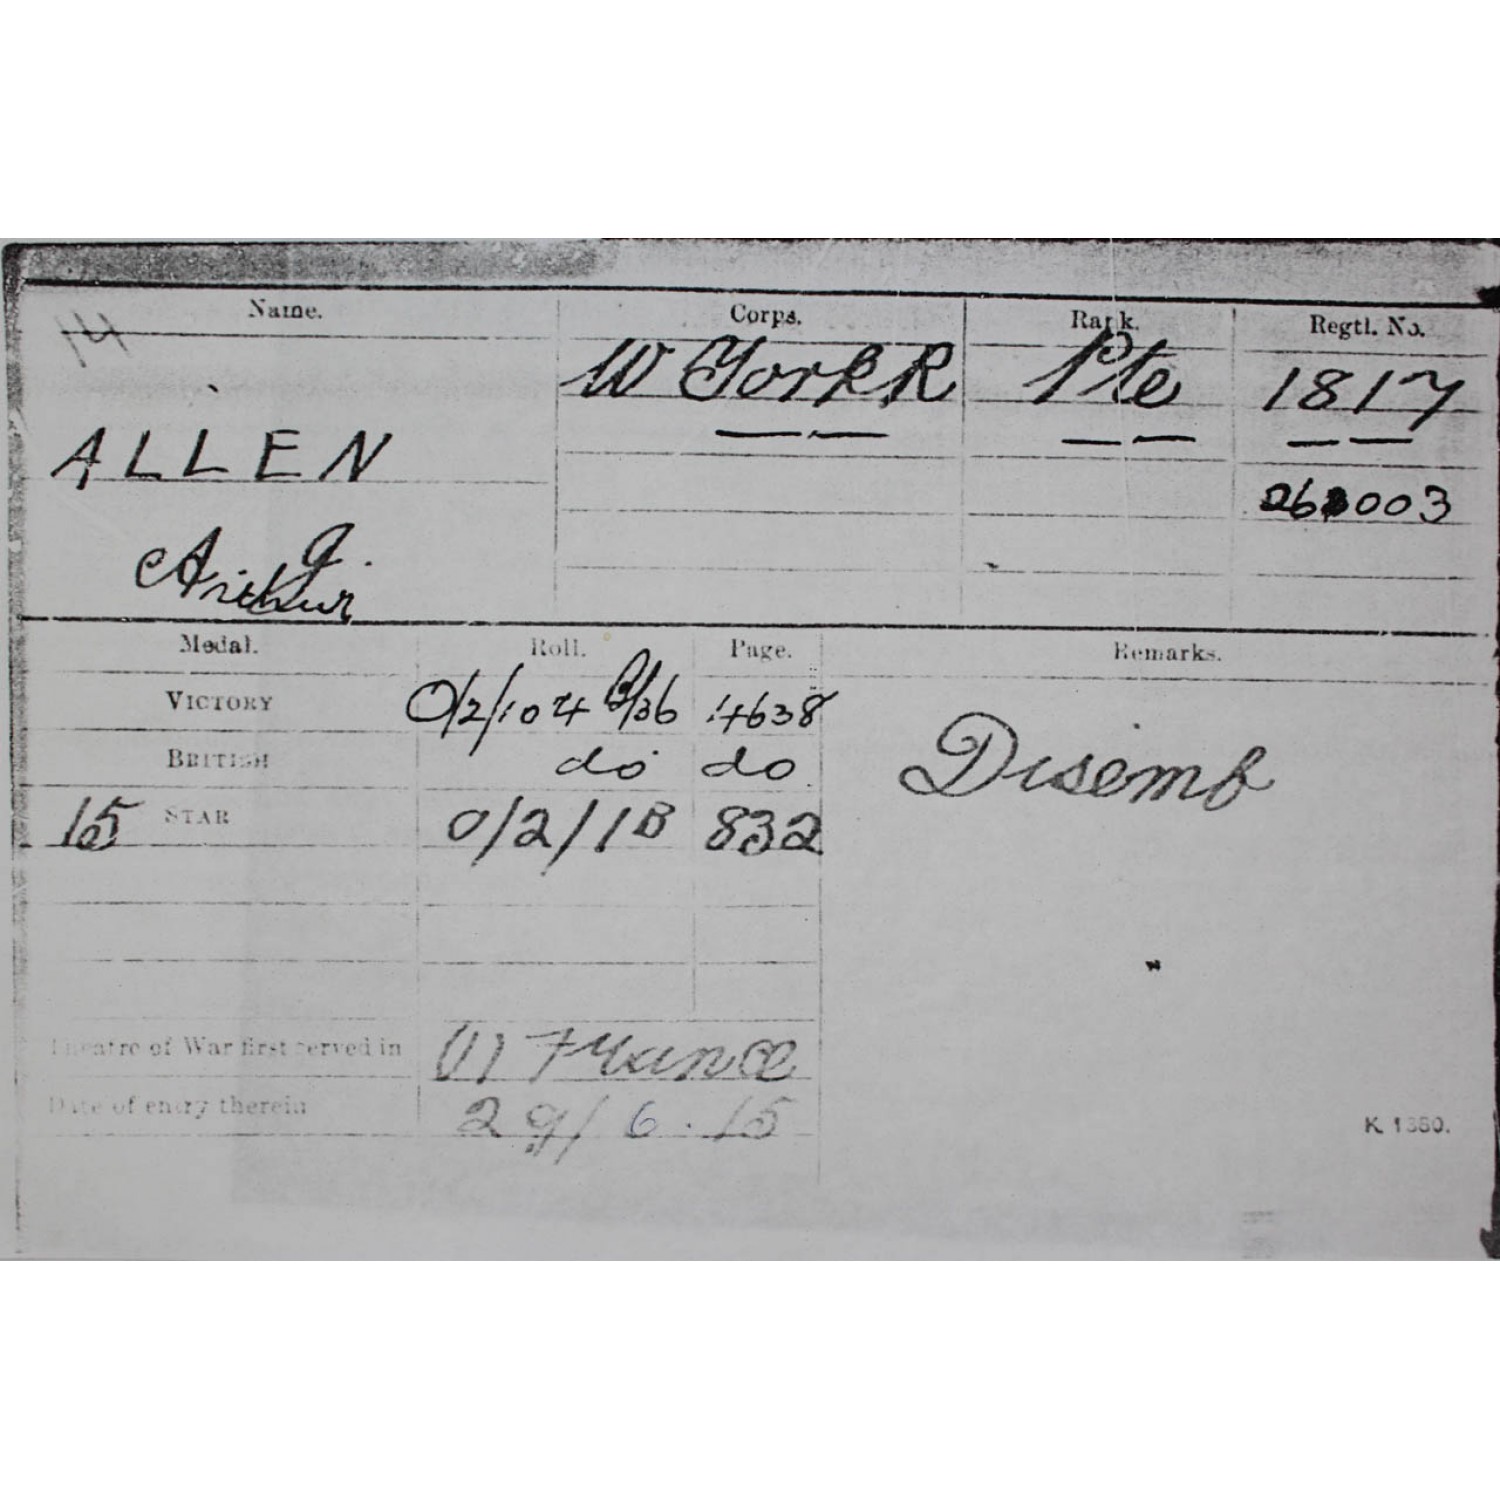 Name. Corps. Rank. Regtl. No.
14
W York R Pte 1817
ALLEN
— — — — — —
003
A.
Arthur
Medal. Roll. Page. Remarks.
VICTORY O/2/104 B/36 4638
BRITISH do do
Disemb
15 STAR O/2/1B 832
Theatre of War first served in (1) France
Date of entry therein 29/6.15
K. 1380.